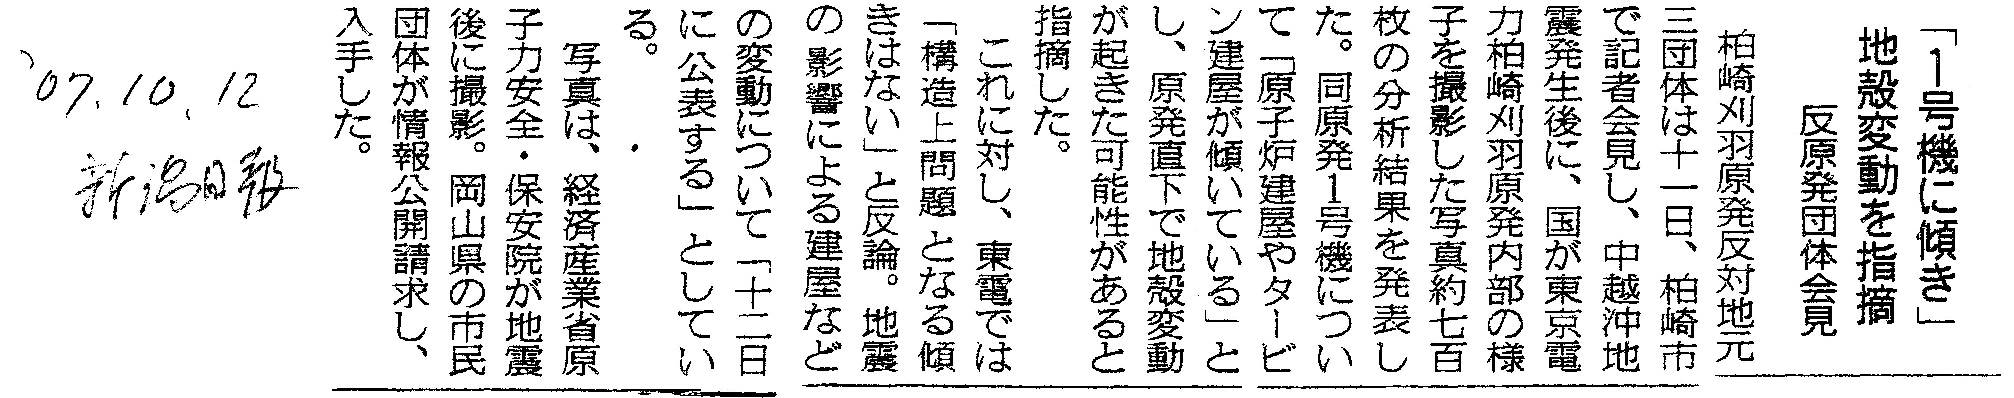 「1号機に傾き」
地殻変動を指摘
反原発団体会見
柏崎刈羽原発反対地元
三団体は十一日、柏崎市
で記者会見し、中越沖地
震発生後に、国が東京電
力柏崎刈羽原発内部の様
子を撮影した写真約七百
枚の分析結果を発表し
た。同原発1号機につい
て「原子炉建屋やタービ
ン建屋が傾いている」と
し、原発直下で地殻変動
が起きた可能性があると
指摘した。
これに対し、東電では
「構造上問題となる傾
きはない」と反論。地震
の影響による建屋など
の変動について「十二日
に公表する」としてい
る。
写真は、経済産業省原
子力安全・保安院が地震
後に撮影。岡山県の市民
団体が情報公開請求し、
入手した。
'07.10.12
新潟日報